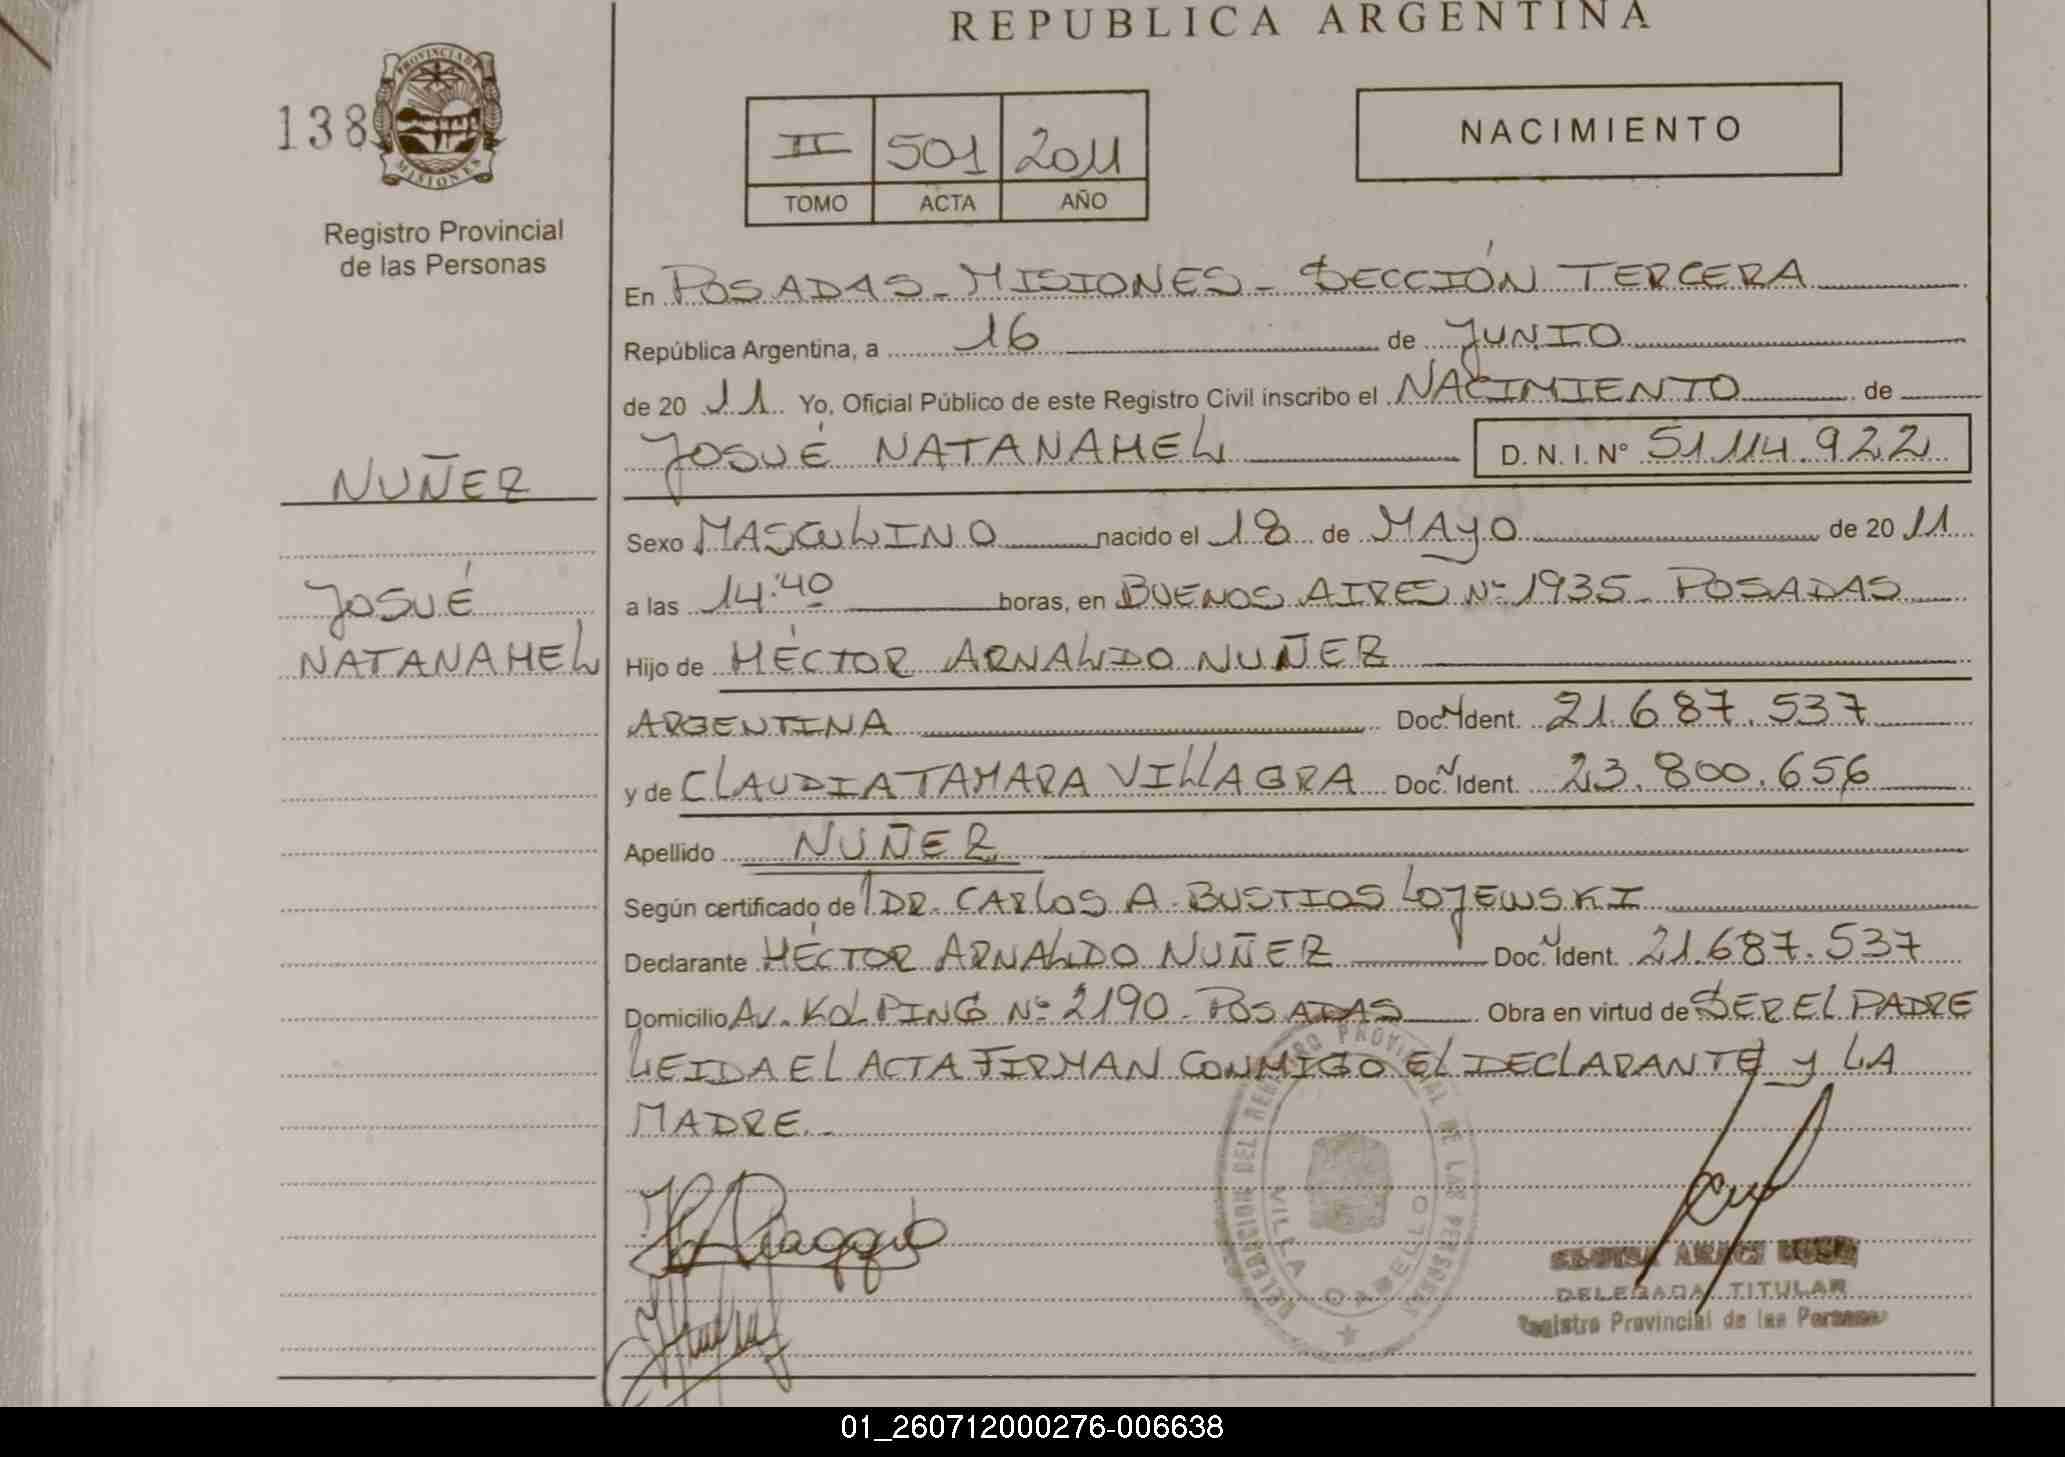 REPUBLICA ARGENTINA
138
PROVINCIA DE
MISIONES
Registro Provincial
de las Personas
II 501 2011
TOMO ACTA AÑO
NACIMIENTO
En POSADAS - MISIONES - SECCIÓN TERCERA
República Argentina, a 16 de JUNIO
de 20 11 Yo, Oficial Público de este Registro Civil inscribo el NACIMIENTO de
JOSUÉ NATANAHEL D. N. I. N° 51.114.922
NUÑEZ
JOSUÉ
NATANAHEL
Sexo MASCULINO nacido el 18 de MAYO de 20 11
a las 14:40 horas, en BUENOS AIRES Nº 1935 - POSADAS
Hijo de HÉCTOR ARNALDO NUÑEZ
ARGENTINA Doc. N Ident. 21.687.537
y de CLAUDIA TAMARA VILLAGRA Doc. N Ident. 23.800.656
Apellido NUÑEZ
Según certificado de DR. CARLOS A. BUSTIOS LOJEWSKI
Declarante HÉCTOR ARNALDO NUÑEZ Doc. N Ident. 21.687.537
Domicilio AV. KOLPING Nº 2190 - POSADAS Obra en virtud de SER EL PADRE
LEIDA EL ACTA FIRMAN CONMIGO EL DECLARANTE y LA
MADRE.-
DELEGACION DEL REGISTRO PROVINCIAL DE LAS PERSONAS
VILLA CABELLO
DELEGADA TITULAR
Registro Provincial de las Personas
01_260712000276-006638